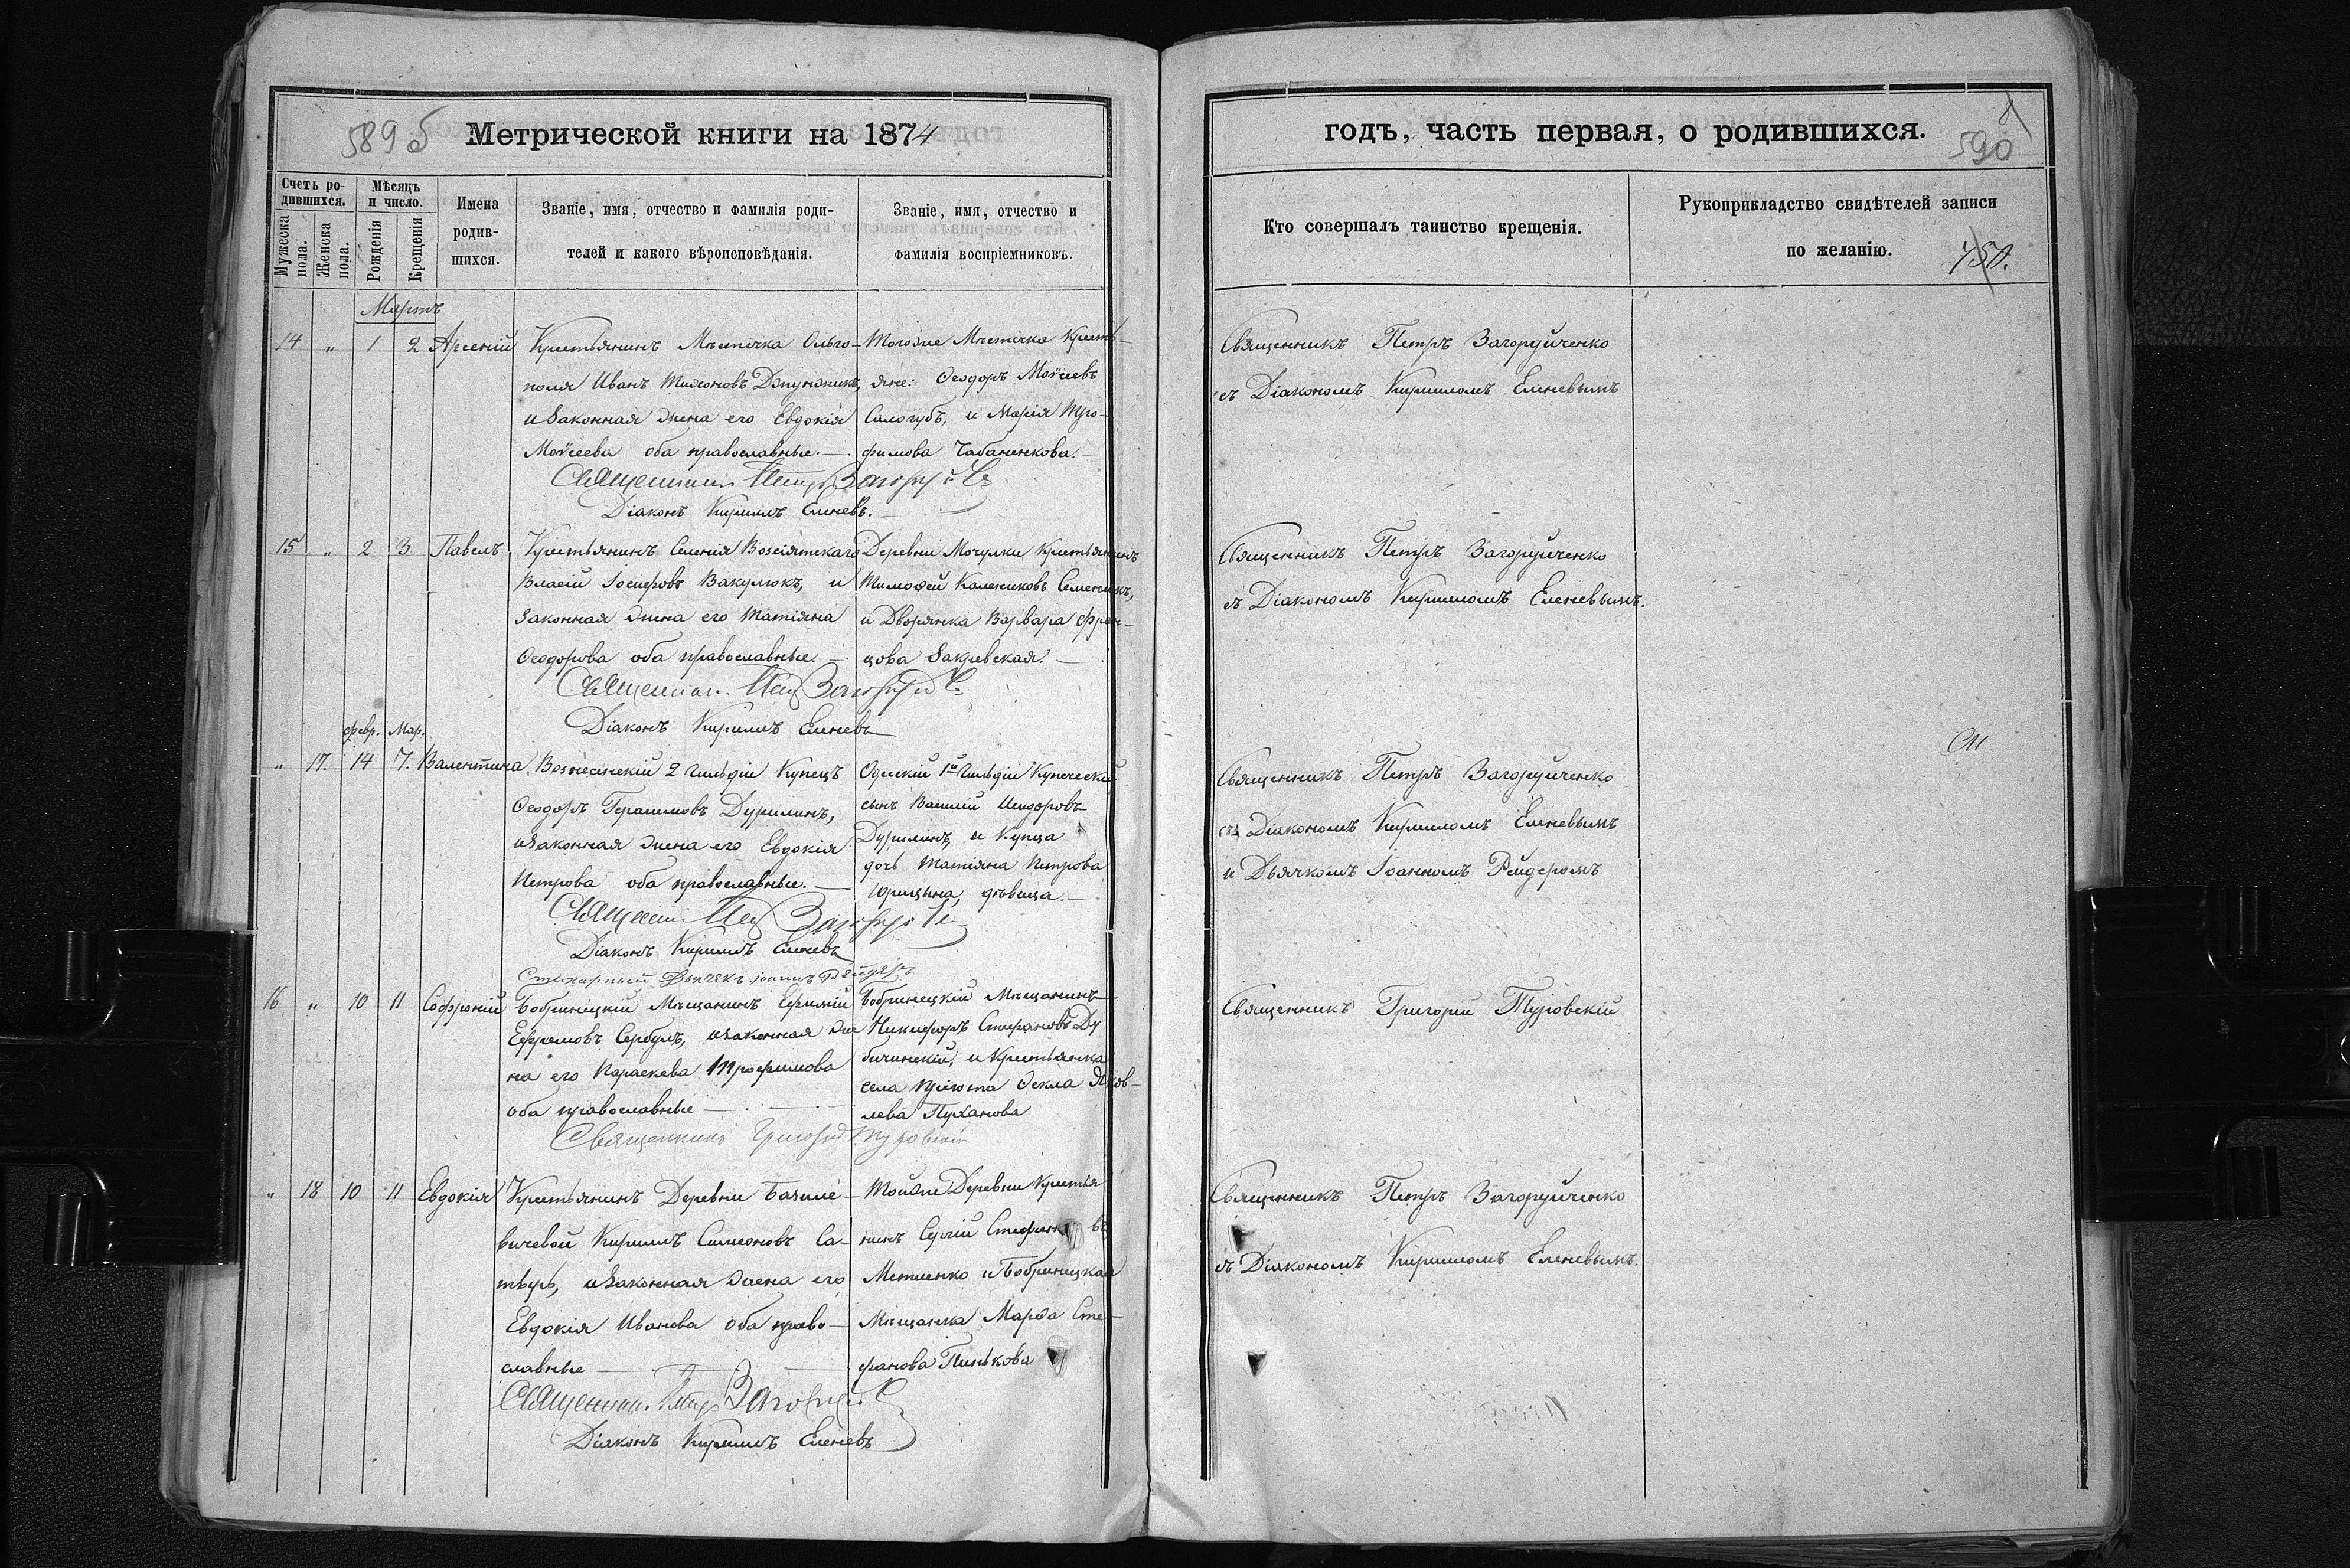 589 б Метрической книги на 1874
Счетъ ро-
дившихся.
Мужеска пола.
Женска пола.
Мѣсяцъ
и число.
Рожденія
Крещенія
Имена
родив-
шихся.
Званіе, имя, отчество и фамилія роди-
телей и какого вѣроисповѣданія.
Званіе, имя, отчество и
фамилія воспріемниковъ.
Мартъ
14 " 1 2 Арсеній
Крестьянинъ Мѣстечка Ольго-
поля Иванъ Тихоновъ
и законная жена его Евдокія
Моѵсеева оба православные.
Тогоже Мѣстечка Кресть-
яне: Ѳеодоръ Моѵсеевъ
Сологубъ, и Марія Тро-
фимова Чабаненкова.
Священникъ Петръ
Діаконъ Кириллъ Еленевъ.
15 " 2 3 Павелъ
Крестьянинъ Селенія Возсіятскаго
Власій Іосифовъ Вакулюкъ, и
законная жена его Татіяна
Ѳеодорова оба православные.
Деревни Мочулки Крестьянинъ
Тимоѳей Калениковъ Семенюкъ,
и Дворянка Варвара Фран-
цова Закревская.
Священникъ Петръ
Діаконъ Кириллъ Еленевъ
февр. Мар.
" 17. 14 7. Валентина
Вознесенскій 2 гильдіи Купецъ
Ѳеодоръ Герасимовъ Дурилинъ,
и законная жена его Евдокія
Петрова оба православные.
Одесскій 1й Гильдіи Купеческій
сынъ Василій Исидоровъ
Дурилинъ, и Купца
дочь Татіяна Петрова
Юрицына, дѣвица.
Священникъ Петръ
Діаконъ Кириллъ Еленевъ
Стихарный Дьячекъ Іоаннъ Рейдеръ
16 " 10 11 Софроній
Бобринецкій Мѣщанинъ Ефимій
Ефремовъ Сербулъ, и законная же
на его Параскева Трофимова
оба православные
Бобринецкій Мѣщанинъ
Никифоръ Стефановъ Ду
бичинскій, и Крестьянка
села Ѳекла Яков-
лева Пуханова
Священникъ Григорій Туровскій
" 18 10 11 Евдокія
Крестьянинъ Деревни Базиле-
вичевой Кириллъ Симеоновъ Са-
тыръ, и законная жена его
Евдокія Иванова оба право-
славные
Тойже Деревни Крестья
нинъ Сергій Стефановъ
Метленко и Бобринецкая
Мѣщанка Марѳа Сте-
фанова Пинькова
Священникъ Петръ
Діаконъ Кириллъ Еленевъ
годъ, часть первая, о родившихся.
590
Кто совершалъ таинство крещенія.
Рукоприкладство свидѣтелей записи
по желанію.
450.
Священникъ Петръ Загоруйченко
съ Діакономъ Кирилломъ Еленевымъ
Священникъ Петръ Загоруйченко
съ Діакономъ Кирилломъ Еленевымъ.
Священникъ Петръ Загоруйченко
съ Діакономъ Кирилломъ Еленевымъ
и Дьячкомъ Іоанномъ Рейдеромъ
Священникъ Григорій Туровскій
Священникъ Петръ Загоруйченко
съ Діакономъ Кирилломъ Еленевымъ.